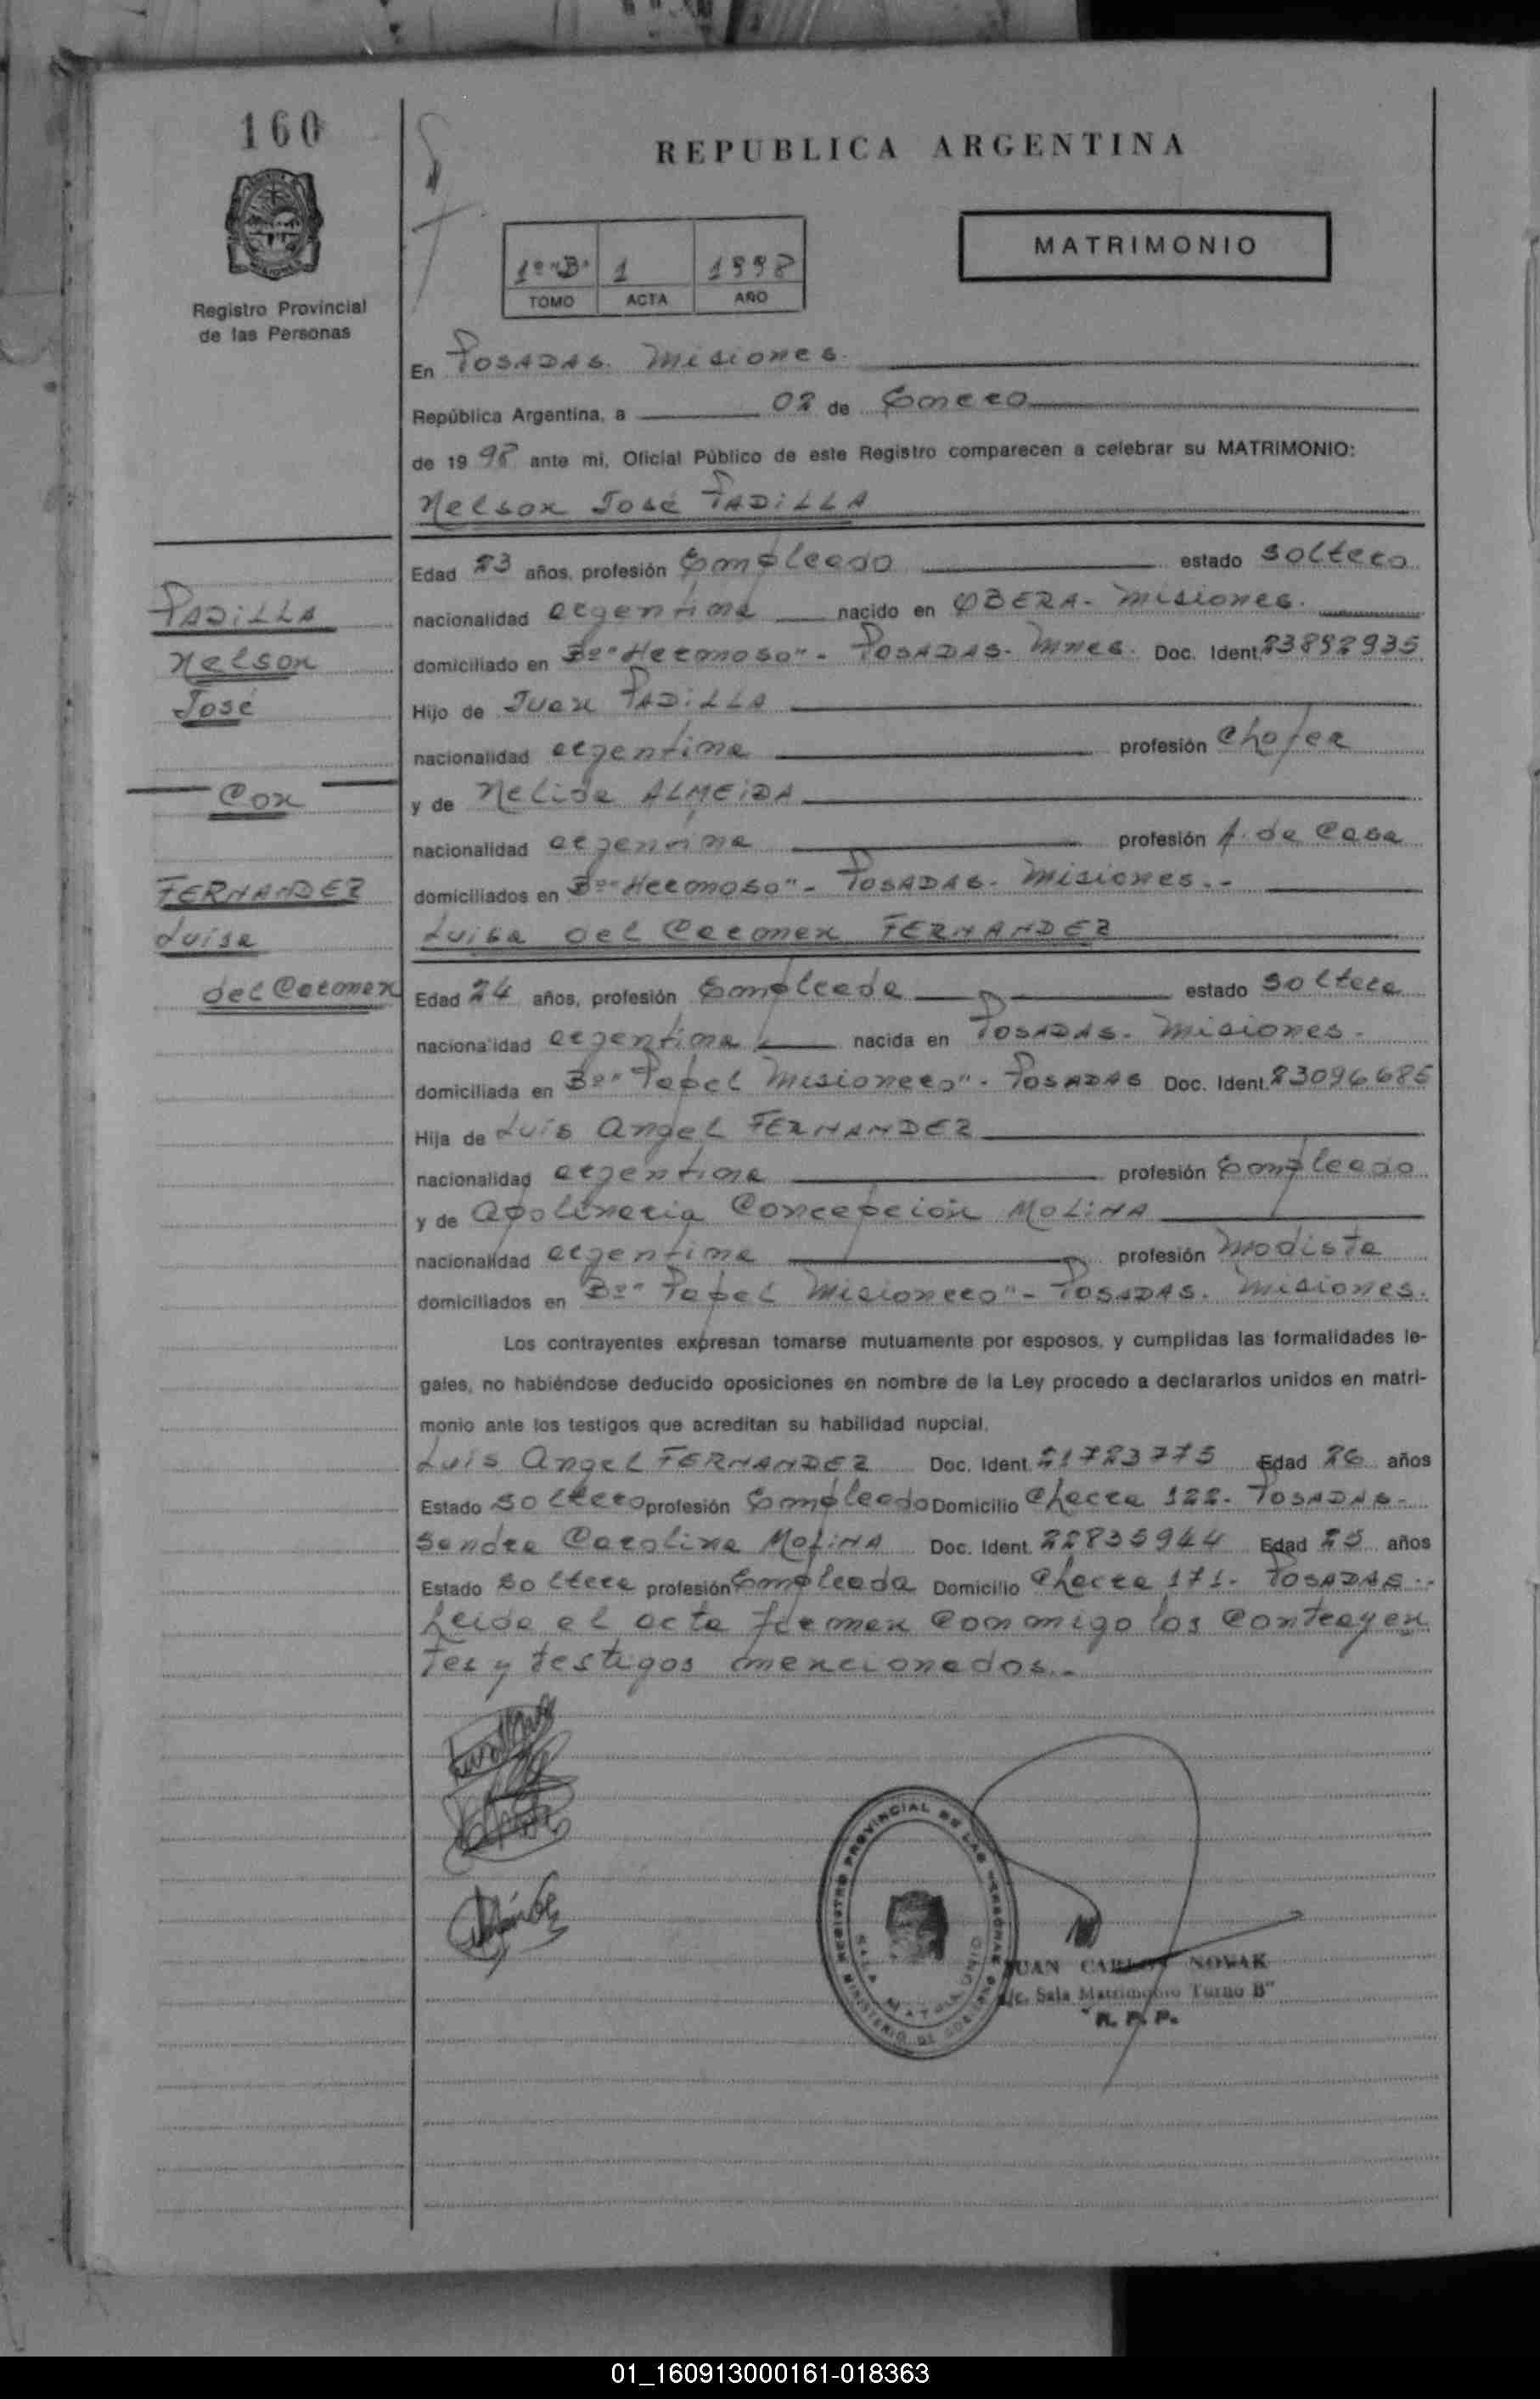 160
REPUBLICA ARGENTINA
MATRIMONIO
1º "B" 1 1998
TOMO ACTA AÑO
Registro Provincial
de las Personas
En POSADAS. Misiones.
República Argentina, a 02 de Enero
de 1998 ante mi, Oficial Público de este Registro comparecen a celebrar su MATRIMONIO:
Nelson José PADILLA
Edad 23 años, profesión Empleado estado soltero
PADILLA
nacionalidad argentina nacido en OBERA - Misiones.
Nelson
domiciliado en Bº "Hermoso" - POSADAS - Mnes. Doc. Ident. 23892935
José
Hijo de Juan PADILLA
nacionalidad argentina profesión Chofer
Con
y de Nelida ALMEIDA
nacionalidad argentina profesión A. de Casa
FERNANDEZ
domiciliados en Bº "Hermoso" - POSADAS - Misiones.-
Luisa
Luisa del Carmen FERNANDEZ
del Carmen
Edad 24 años, profesión Empleada estado soltera
nacionalidad argentina nacida en POSADAS - Misiones.
domiciliada en Bº "Papel Misionero" - POSADAS Doc. Ident. 23096685
Hija de Luis Angel FERNANDEZ
nacionalidad argentina profesión Empleado
y de Apolinaria Concepción MOLINA
nacionalidad argentina profesión Modista
domiciliados en Bº "Papel Misionero" - POSADAS. Misiones.
Los contrayentes expresan tomarse mutuamente por esposos, y cumplidas las formalidades le-
gales, no habiéndose deducido oposiciones en nombre de la Ley procedo a declararlos unidos en matri-
monio ante los testigos que acreditan su habilidad nupcial.
Luis Angel FERNANDEZ Doc. Ident. 21723775 Edad 26 años
Estado soltero profesión Empleado Domicilio Chacra 122. POSADAS.-
Sandra Carolina MOLINA Doc. Ident. 22835944 Edad 25 años
Estado soltera profesión Empleada Domicilio Chacra 171. POSADAS.-
Leida el acta firman conmigo los contrayen
tes y testigos mencionados.-
REGISTRO PROVINCIAL DE LAS PERSONAS
SALA MATRIMONIO
MINISTERIO DE GOBIERNO
JUAN CARLOS NOVAK
a/c. Sala Matrimonio Turno B"
R. P. P.
01_160913000161-018363